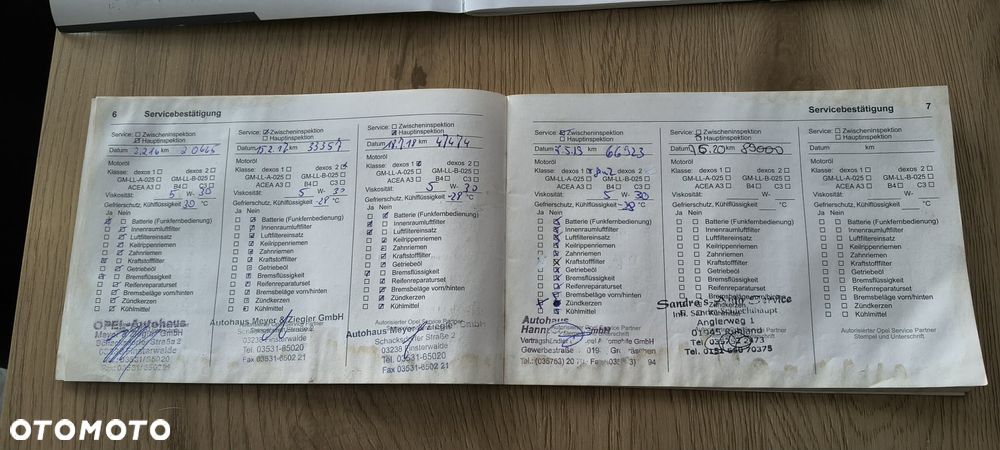 6 Servicebestätigung
Service: Zwischeninspektion
Hauptinspektion
Datum 2.2.16 km 20665
Motoröl
Klasse: dexos 1 dexos 2
GM-LL-A-025 GM-LL-B-025
ACEA A3 B4 C3
Viskosität: 5 W- 30
Gefrierschutz, Kühlflüssigkeit
30 °C
Ja Nein
Batterie (Funkfernbedienung)
Innenraumluftfilter
Luftfiltereinsatz
Keilrippenriemen
Zahnriemen
Kraftstofffilter
Getriebeöl
Bremsflüssigkeit
Reifenreparaturset
Bremsbeläge vorn/hinten
Zündkerzen
Kühlmittel
OPEL-Autohaus
Meyer & Ziegler GmbH
Service: Zwischeninspektion
Hauptinspektion
Datum 15.2.17 km 33357
Motoröl
Klasse: dexos 1 dexos 2
GM-LL-A-025 GM-LL-B-025
ACEA A3 B4 C3
Viskosität: 5 W- 30
Gefrierschutz, Kühlflüssigkeit -28 °C
Ja Nein
Batterie (Funkfernbedienung)
Innenraumluftfilter
Luftfiltereinsatz
Keilrippenriemen
Zahnriemen
Kraftstofffilter
Getriebeöl
Bremsflüssigkeit
Reifenreparaturset
Bremsbeläge vorn/hinten
Zündkerzen
Kühlmittel
Autohaus Meyer & Ziegler GmbH
03238 Finsterwalde
Tel. 03531-65020
Fax 03531-650221
Service: Zwischeninspektion
Hauptinspektion
Datum 18.7.18 km 47474
Motoröl
Klasse: dexos 1 dexos 2
GM-LL-A-025 GM-LL-B-025
ACEA A3 B4 C3
Viskosität: 5 W- 30
Gefrierschutz, Kühlflüssigkeit -28 °C
Ja Nein
Batterie (Funkfernbedienung)
Innenraumluftfilter
Luftfiltereinsatz
Keilrippenriemen
Zahnriemen
Kraftstofffilter
Getriebeöl
Bremsflüssigkeit
Reifenreparaturset
Bremsbeläge vorn/hinten
Zündkerzen
Kühlmittel
Autohaus Meyer & Ziegler GmbH
Schacksdorfer Straße 2
03238 Finsterwalde
Tel. 03531-65020
Fax 03531-6502 21
Servicebestätigung 7
Service: Zwischeninspektion
Hauptinspektion
Datum 7.5.19 km 66923
Motoröl
Klasse: dexos 1 dexos 2
GM-LL-A-025 GM-LL-B-025
ACEA A3 B4 C3
Viskosität: 5 W- 30
Gefrierschutz, Kühlflüssigkeit -28 °C
Ja Nein
Batterie (Funkfernbedienung)
Innenraumluftfilter
Luftfiltereinsatz
Keilrippenriemen
Zahnriemen
Kraftstofffilter
Getriebeöl
Bremsflüssigkeit
Reifenreparaturset
Bremsbeläge vorn/hinten
Zündkerzen
Kühlmittel
Autohaus
GmbH
Autorisierter Opel Service Partner
Service: Zwischeninspektion
Hauptinspektion
Datum km 89000
Motoröl
Klasse: dexos 1 dexos 2
GM-LL-A-025 GM-LL-B-025
ACEA A3 B4 C3
Viskosität: W-
Gefrierschutz, Kühlflüssigkeit
°C
Ja Nein
Batterie (Funkfernbedienung)
Innenraumluftfilter
Luftfiltereinsatz
Keilrippenriemen
Zahnriemen
Kraftstofffilter
Getriebeöl
Bremsflüssigkeit
Reifenreparaturset
Bremsbeläge vorn/hinten
Zündkerzen
Anglerweg 1
01945 Ruhland
Service: Zwischeninspektion
Hauptinspektion
Datum km
Motoröl
Klasse: dexos 1 dexos 2
GM-LL-A-025 GM-LL-B-025
ACEA A3 B4 C3
Viskosität: W-
Gefrierschutz, Kühlflüssigkeit
°C
Ja Nein
Batterie (Funkfernbedienung)
Innenraumluftfilter
Luftfiltereinsatz
Keilrippenriemen
Zahnriemen
Kraftstofffilter
Getriebeöl
Bremsflüssigkeit
Reifenreparaturset
Bremsbeläge vorn/hinten
Zündkerzen
Kühlmittel
Autorisierter Opel Service Partner
Stempel und Unterschrift
OTOMOTO